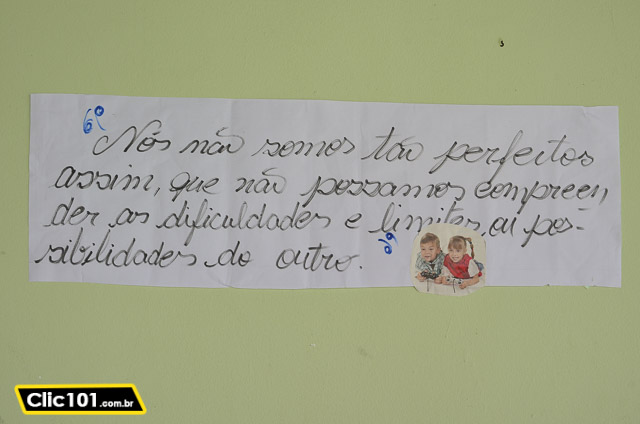 6º
Nós não somos tão perfeitos
assim, que não possamos compreen
der as dificuldades e limites, ai pos-
sibilidades do outro.
Clic101.com.br